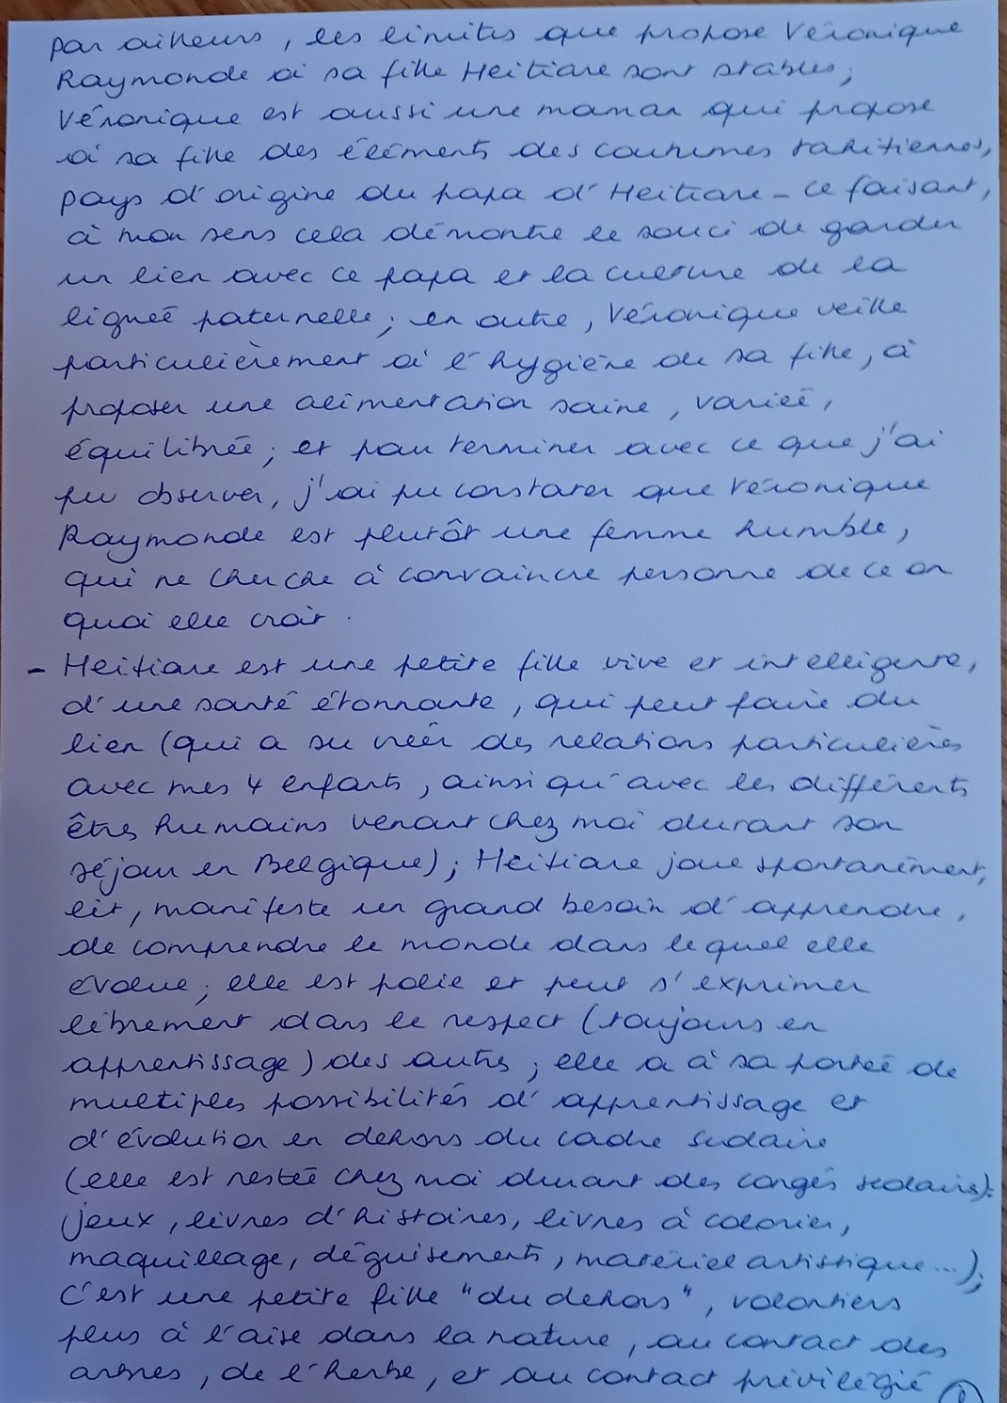 par ailleurs, les limites que propose Véronique
Raymonde à sa fille Heitiare sont stables;
Véronique est aussi une maman qui propose
à sa fille des éléments des coutumes tahitiennes,
pays d'origine du papa d'Heitiare - ce faisant,
à mon sens cela démontre le souci de garder
un lien avec ce papa et la culture de la
lignée paternelle; en outre, Véronique veille
particulièrement à l'hygiène de sa fille, à
proposer une alimentation saine, variée,
équilibrée; et pour terminer avec ce que j'ai
pu observer, j'ai pu constater que Véronique
Raymonde est plutôt une femme humble,
qui ne cherche à convaincre personne de ce en
quoi elle croit.
- Heitiare est une petite fille vive et intelligente,
d'une santé étonnante, qui peut faire du
lien (qui a su créer des relations particulières
avec mes 4 enfants, ainsi qu'avec les différents
êtres humains venant chez moi durant son
séjour en Belgique); Heitiare joue spontanément,
lit, manifeste un grand besoin d'apprendre,
de comprendre le monde dans lequel elle
évolue; elle est polie et peut s'exprimer
librement dans le respect (toujours en
apprentissage) des autres; elle a à sa portée de
multiples possibilités d'apprentissage et
d'évolution en dehors du cadre scolaire
(elle est restée chez moi durant des congés scolaires):
(jeux, livres d'histoires, livres à colorier,
maquillage, déguisements, matériel artistique...);
C'est une petite fille "du dehors", volontiers
plus à l'aise dans la nature, au contact des
arbres, de l'herbe, et au contact privilégié